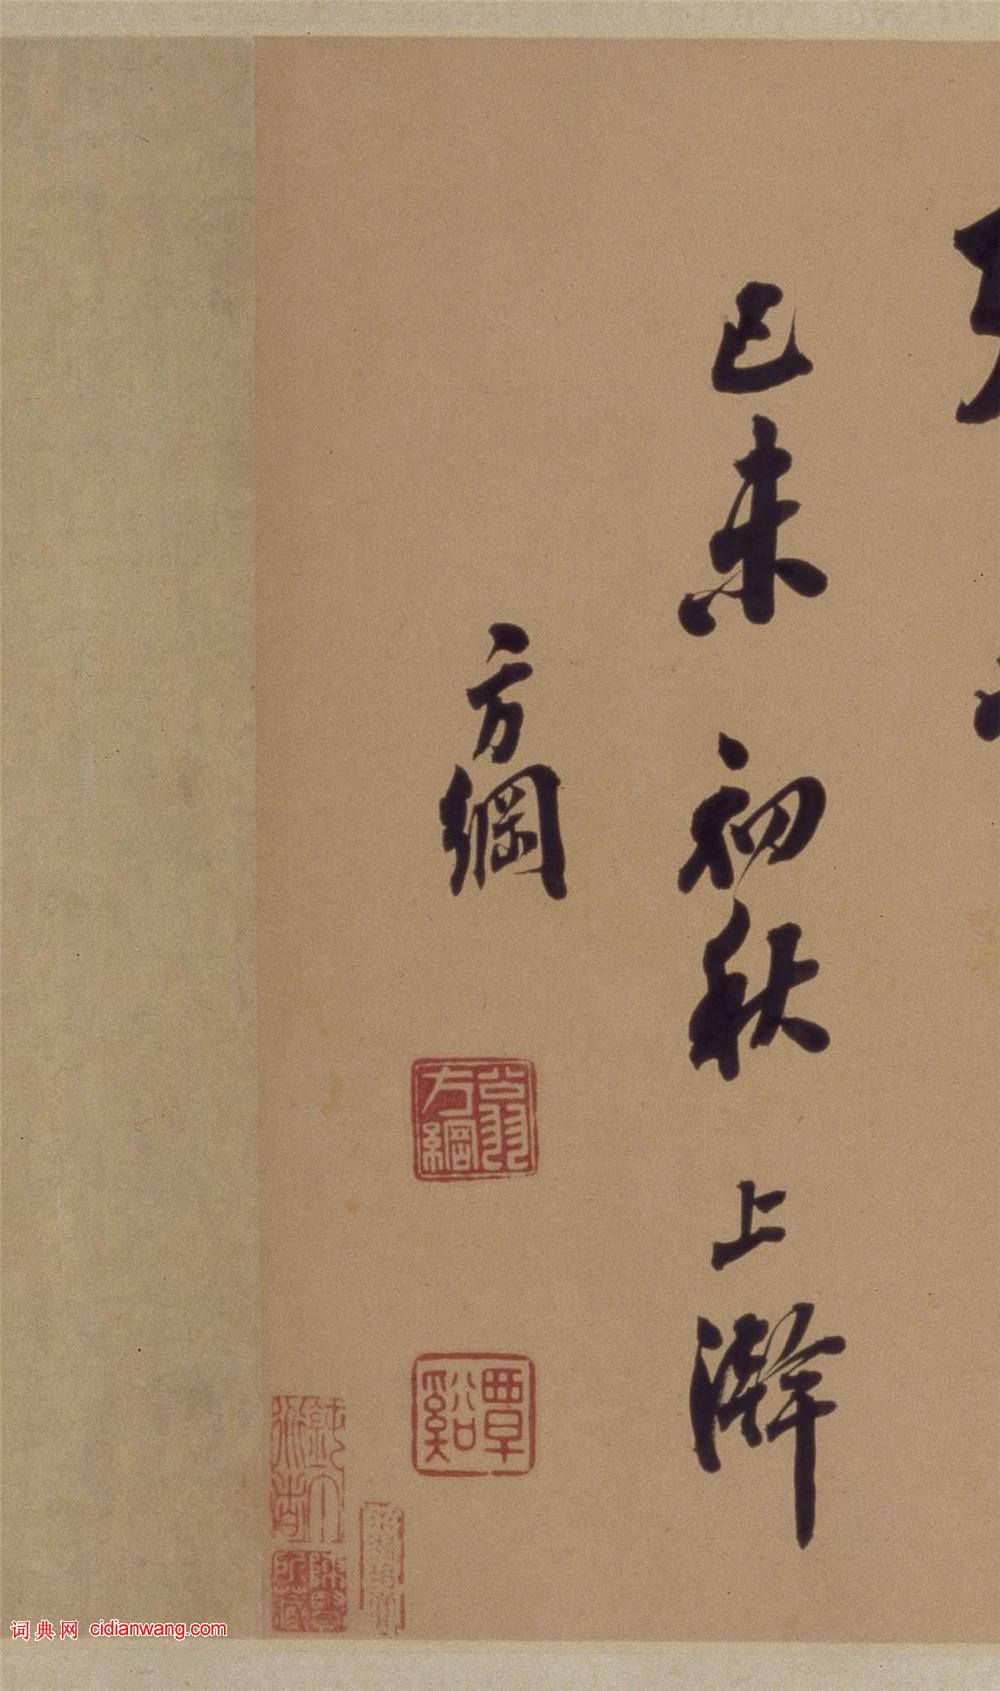 己未初秋上澣
方綱
翁方綱
覃谿
所藏
词典网 cidianwang.com